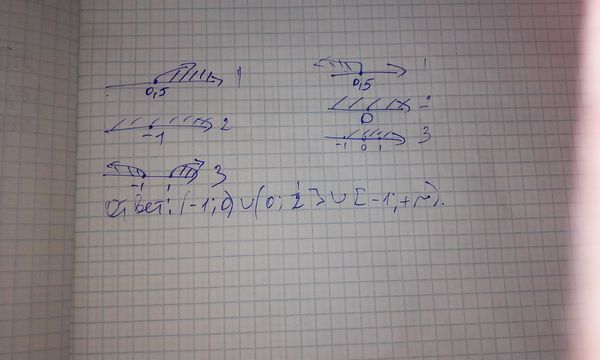 1
0,5
2
-1
3
-1 1
1
0,5
2
0
3
-1 0 1
Ответ: (-1; 0) ∪ (0; 1/2] ∪ [-1; +∞).